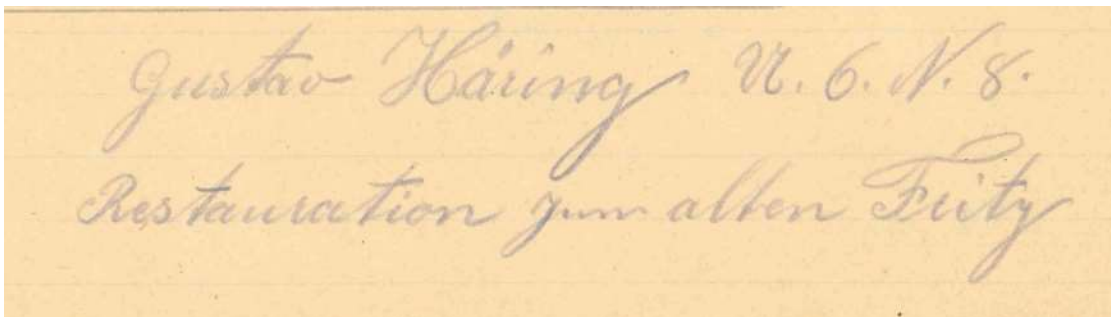 Gustav Häring U. 6. N. 8.
Restauration zum alten Fritz